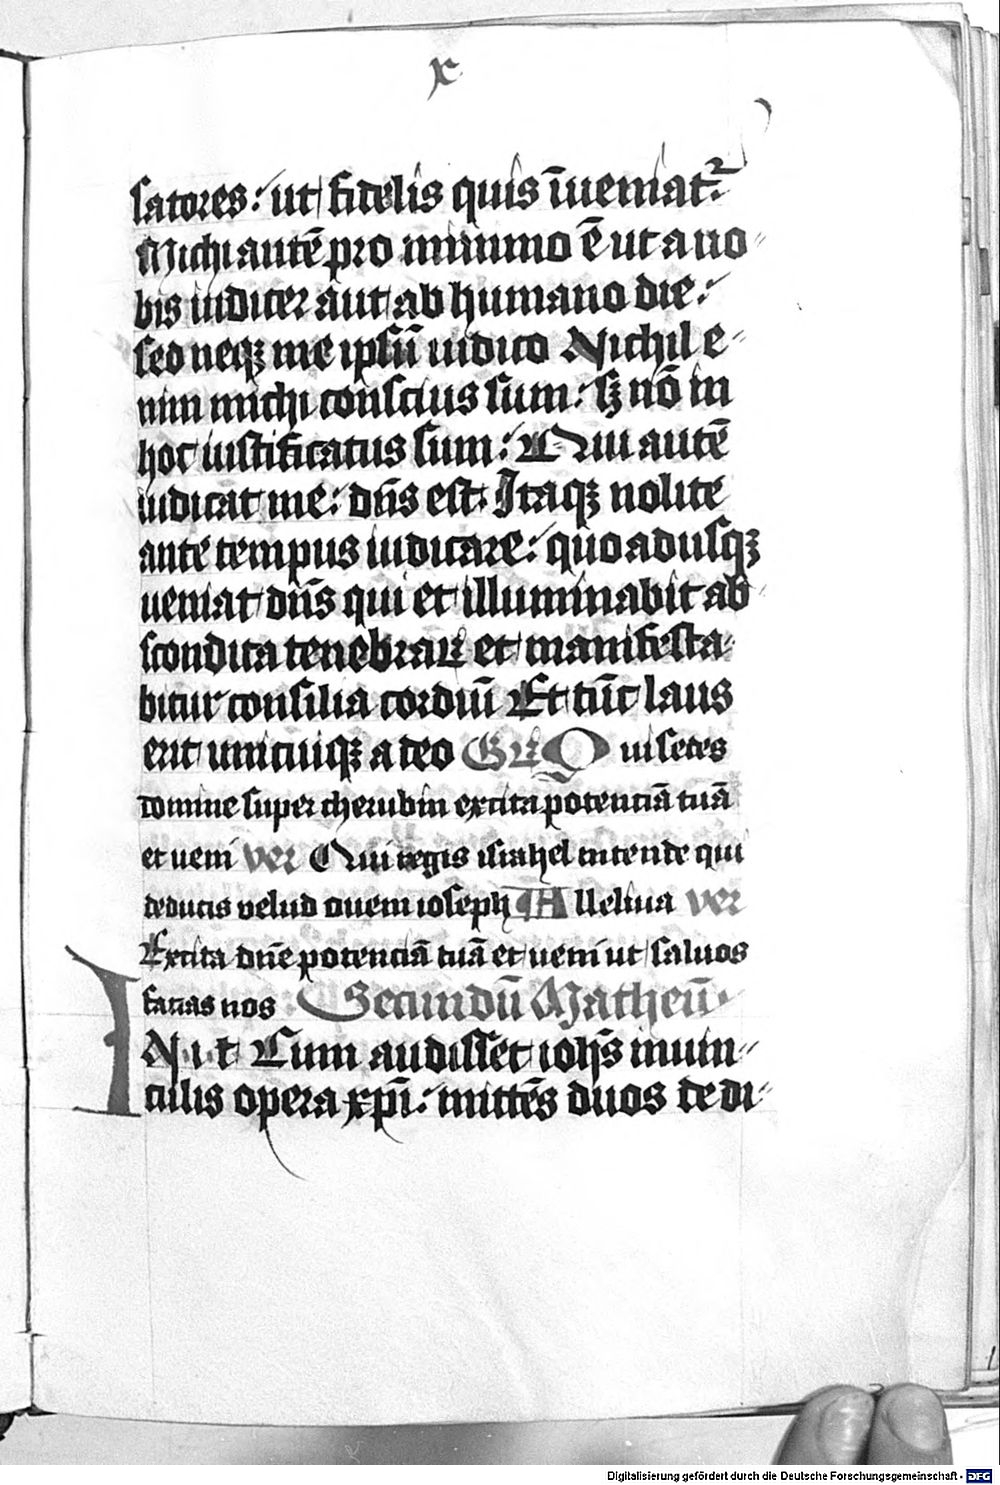 x
satores: ut fidelis quis īueniat᷑
Michi autē pro minimo ē ut a uo
bis iudicer aut ab humano die:
sed neqꝫ me ipsū iudico Nichil e-
nim michi conscius sum: sꝫ nō in
hoc iustificatus sum: Qui autē
iudicat me: dn̄s est. Itaqꝫ nolite
ante tempus iudicare: quoadusqꝫ
ueniat dn̄s qui et illuminabit ab
scondita tenebraꝝ et manifesta-
bitur consilia cordiū Et tūc laus
erit unicuiqꝫ a deo Gꝝ Qui sedes
domine super cherubin excita potentiā tuā
et ueni ver Qui regis israhel intende qui
deducis velud ouem ioseph Alleluia ver
Excita dn̄e potentiā tuā et ueni ut saluos
facias nos Secundū Matheū
IN i t Cum audisset ioh̄s in uin-
culis opera xp̄i: mittēs duos de di-
Digitalisierung gefördert durch die Deutsche Forschungsgemeinschaft - DFG